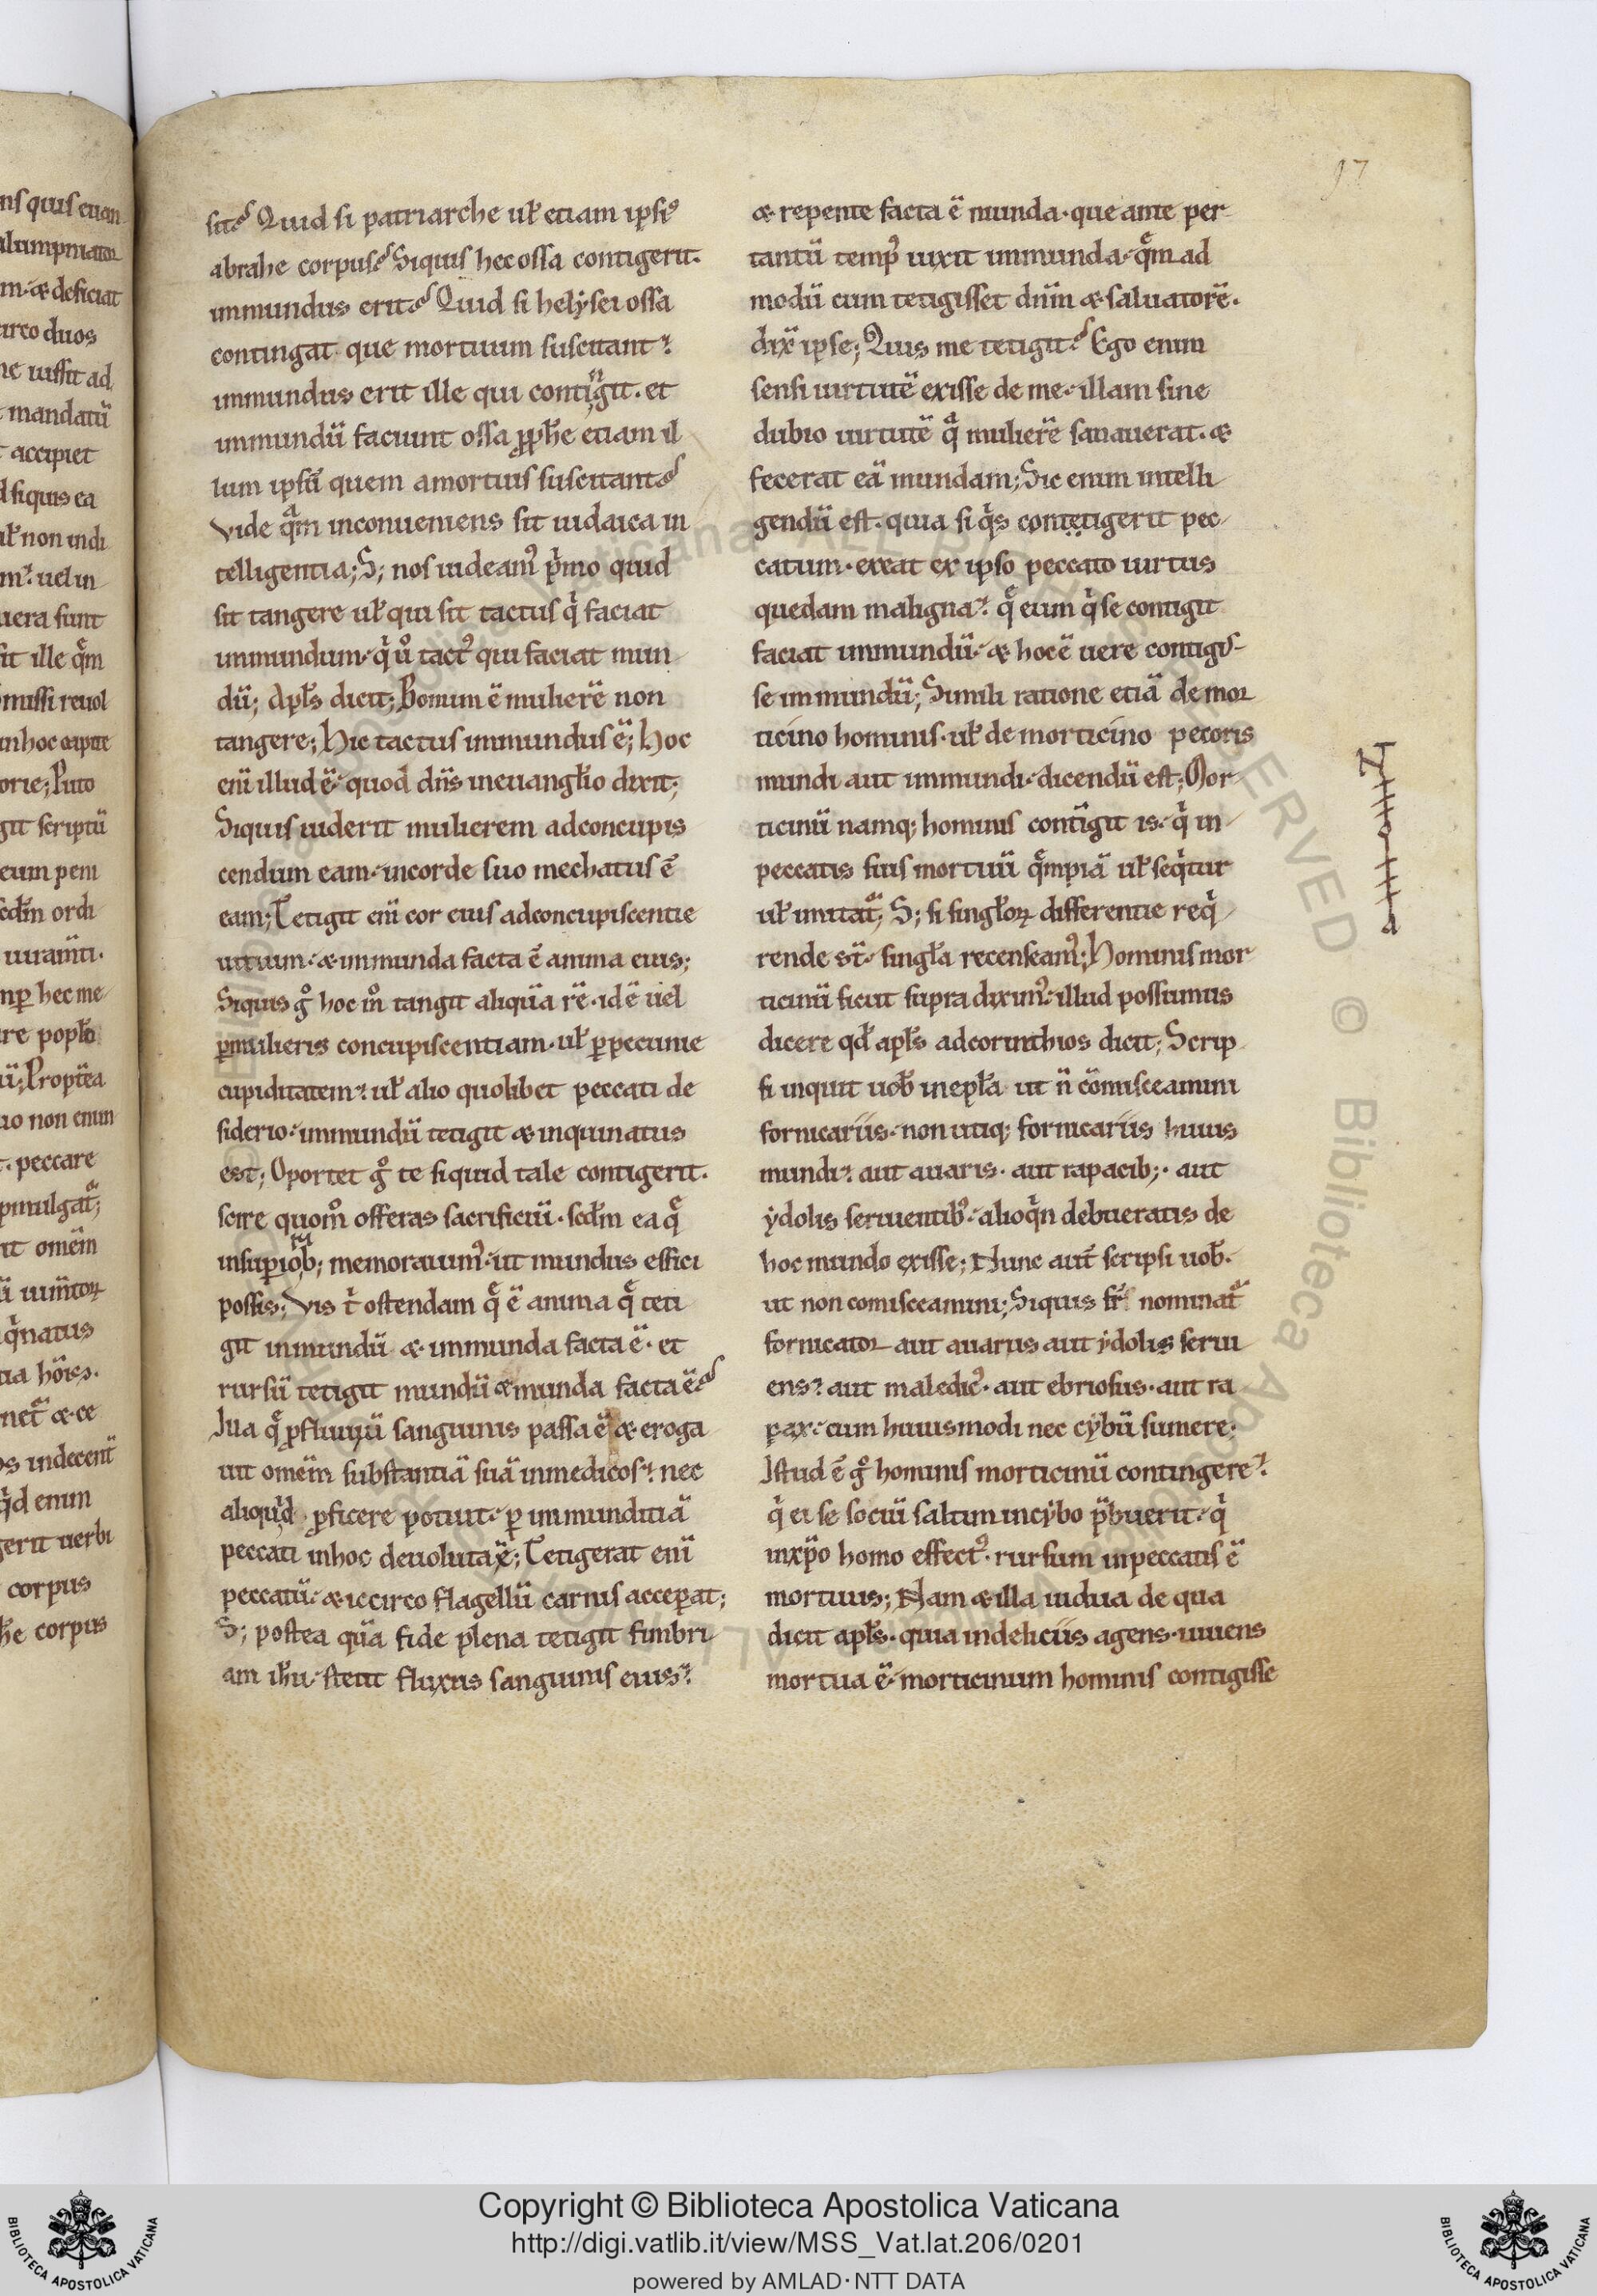 97
sit? Quid si patriarche ul̄ etiam ipsiꝰ
abrahe corpus? Siquis hec ossa contigerit.
inmundus erit? Quid si helẏsei ossa
contingat que mortuum suscitant?
inmundus erit ille qui contigit. et
inmundū faciunt ossa ꝓph̄e etiam il
lum ipsū quem amortuis suscitant?
Vide qͣm inconueniens sit iudaica in
telligentia; S; nos uideamꝰ pͥmo quid
sit tangere ul̄ qui sit tactus qͥ faciat
inmundum. qͥ uͦ tactꝰ qui faciat mun
dū; Apl̄s dicit; Bonum ē mulierē non
tangere; Hic tactus inmundus ē; Hoc
enī illud ē. quod dn̄s ineuangl̄io dixit;
Siquis uiderit mulierem adconcupis
cendum eam. incorde suo mechatus ē
eam; Tetigit enī cor eius adconcupiscentie
uitium. & inmunda facta ē anima eius;
Siquis gͦ hoc mͦ tangit aliquā rē. id ē uel
ꝑmulieris concupiscentiam. ul̄ ꝑpecunie
cupiditatem? ul̄ alio quolibet peccati de
siderio. inmundū tetigit & inquinatus
est; Oportet gͦ te siquid tale contigerit.
scire quomͦ offeras sacrificiū. scdm̄ ea q̄
insuꝑiorib; memorauimꝰ. ut mundus effici
possis; Vis tͥ ostendam q̄ ē anima q̄ teti
git inmundū & inmunda facta ē. et
rursū tetigit mundū & munda facta ē?
Illa q̄ ꝓfluuiū sanguinis passa ē & eroga
uit omēm substantiā suā inmedicos? nec
aliquid ꝓficere potuit. ꝑ inmunditiā
peccati inhoc deuoluta ē; Tetigerat enī
peccatū. & iccirco flagellū carnis acceꝑat;
S; postea quā fide plena tetigit fimbri
am ih̄u. stetit fluxus sanguinis eius?
& repente facta ē munda. que ante per
tantū tempꝰ uixit inmunda. qͤm ad
modū cum tetigisset dn̄m & saluatorē.
dix̄ ipse; Quis me tetigit? Ego enim
sensi uirtutē exisse de me. illam sine
dubio uirtutē qͣ mulierē sanauerat. &
fecerat eā mundam; Sic enim intelli
gendū est. quia si qͥs contetigerit pec
catum. exeat ex ipso peccato uirtus
quedam maligna? q̄ eum qͥ se contigit
faciat inmundū. & hoc ē uere contigis
se inmundū; Simili ratione etiā de mor
ticino hominis. ul̄ de morticino pecoris
mundi aut inmundi. dicendū est; Mor
ticinū namq; hominis contigit is. qͥ in
peccatis suis mortuū qͤmpiā ul̄ seqͥtur
ul̄ imitat̄; S; si singl̄oꝝ differentie reqͥ
rende st̄. singl̄a recenseamꝰ; Hominis mor
ticinū sicut supra diximꝰ. illud possumus
dicere qd̄ apl̄s adcorinthios dicit; Scrip
si inquit uob̄ inepl̄a ut n̄ cōmisceamini
fornicariis. non utiq; fornicariis huius
mundi? aut auaris. aut rapacib;. aut
ẏdolis seruientibꝰ. alioqͥn debueratis de
hoc mundo exisse; Nunc aut̄ scripsi uob̄.
ut non comisceamini; Siquis fr̄ nominat̄
fornicator aut auarus aut ẏdolis serui
ens? aut maledicꝰ. aut ebriosus. aut ra
pax. cum huiusmodi nec cẏbū sumere;
Istud ē gͦ hominis morticinū contingere?
qͥ ei se sociū saltim incẏbo p̄buerit. qͥ
inxp̄o homo effectꝰ. rursum inpeccatis ē
mortuus; Nam & illa uidua de qua
dicit apl̄s. quia indeliciis agens. uiuens
mortua ē. morticinum hominis contigisse
Copyright © Biblioteca Apostolica Vaticana
http://digi.vatlib.it/view/MSS_Vat.lat.206/0201
powered by AMLAD·NTT DATA
BIBLIOTECA APOSTOLICA VATICANA
BIBLIOTECA APOSTOLICA VATICANA